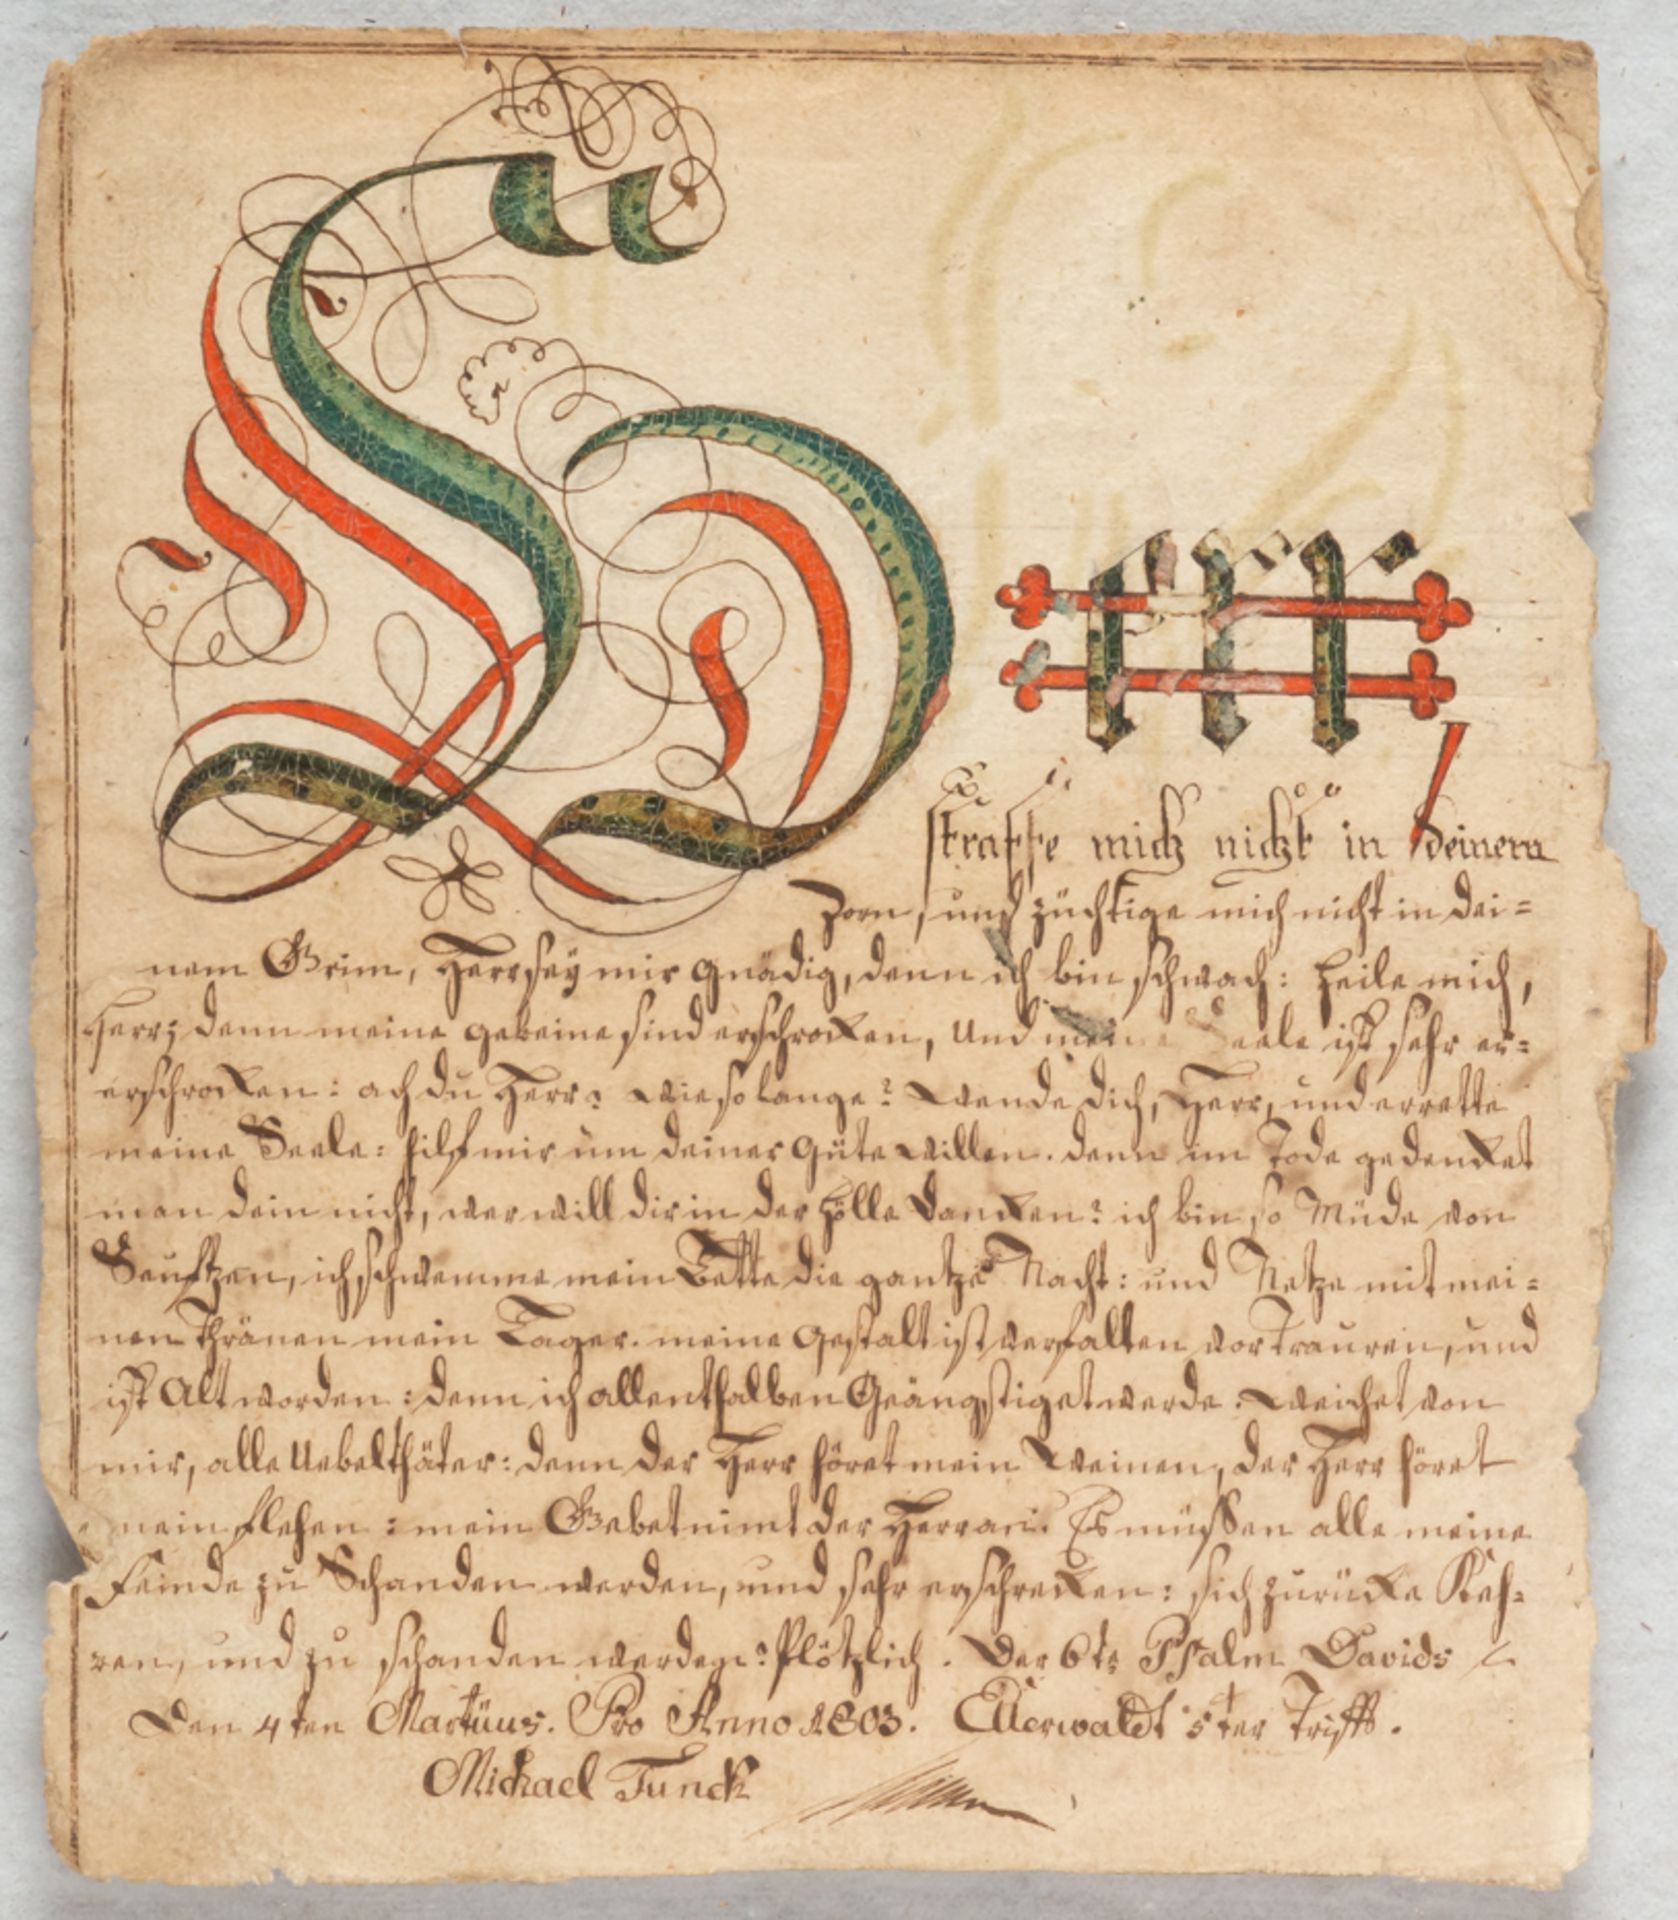 Herr
straffe mich nicht in deinem
Zorn, und züchtige mich nicht in dei=
nem Grim, Herr sey mir gnädig, denn ich bin schwach: heile mich,
Herr; denn meine gebeine sind erschrocken, und meine Seele ist sehr er=
erschrocken: ach du Herr? wie so lange? Wende dich, Herr, und errette
meine Seele: hilf mir um deiner güte willen. denn im Tode gedencket
man dein nicht, wer will dir in der hölle dancken? ich bin so Müde von
Seuftzen, ich schwemme mein Bette die gantze Nacht: und Netze mit mei=
nen thränen mein Lager. meine gestalt ist verfallen vor trauren, und
ist Alt worden: denn ich allenthalben Geängstiget werde. Weichet von
mir, alle Uebelthäter: denn der Herr höret mein Weinen, der Herr höret
mein flehen: mein Gebet nimt der Herr an. Es müssen alle meine
Feinde zu Schanden werden, und sehr erschrecken: sich zurücke Keh=
ren, und zu schanden werden? Plötzlich. Der 6te Psalm Davids
Den 4ten Martüus. Pro Anno 1803. Ellerwaldt 5ter Trifft.
Michael Funck